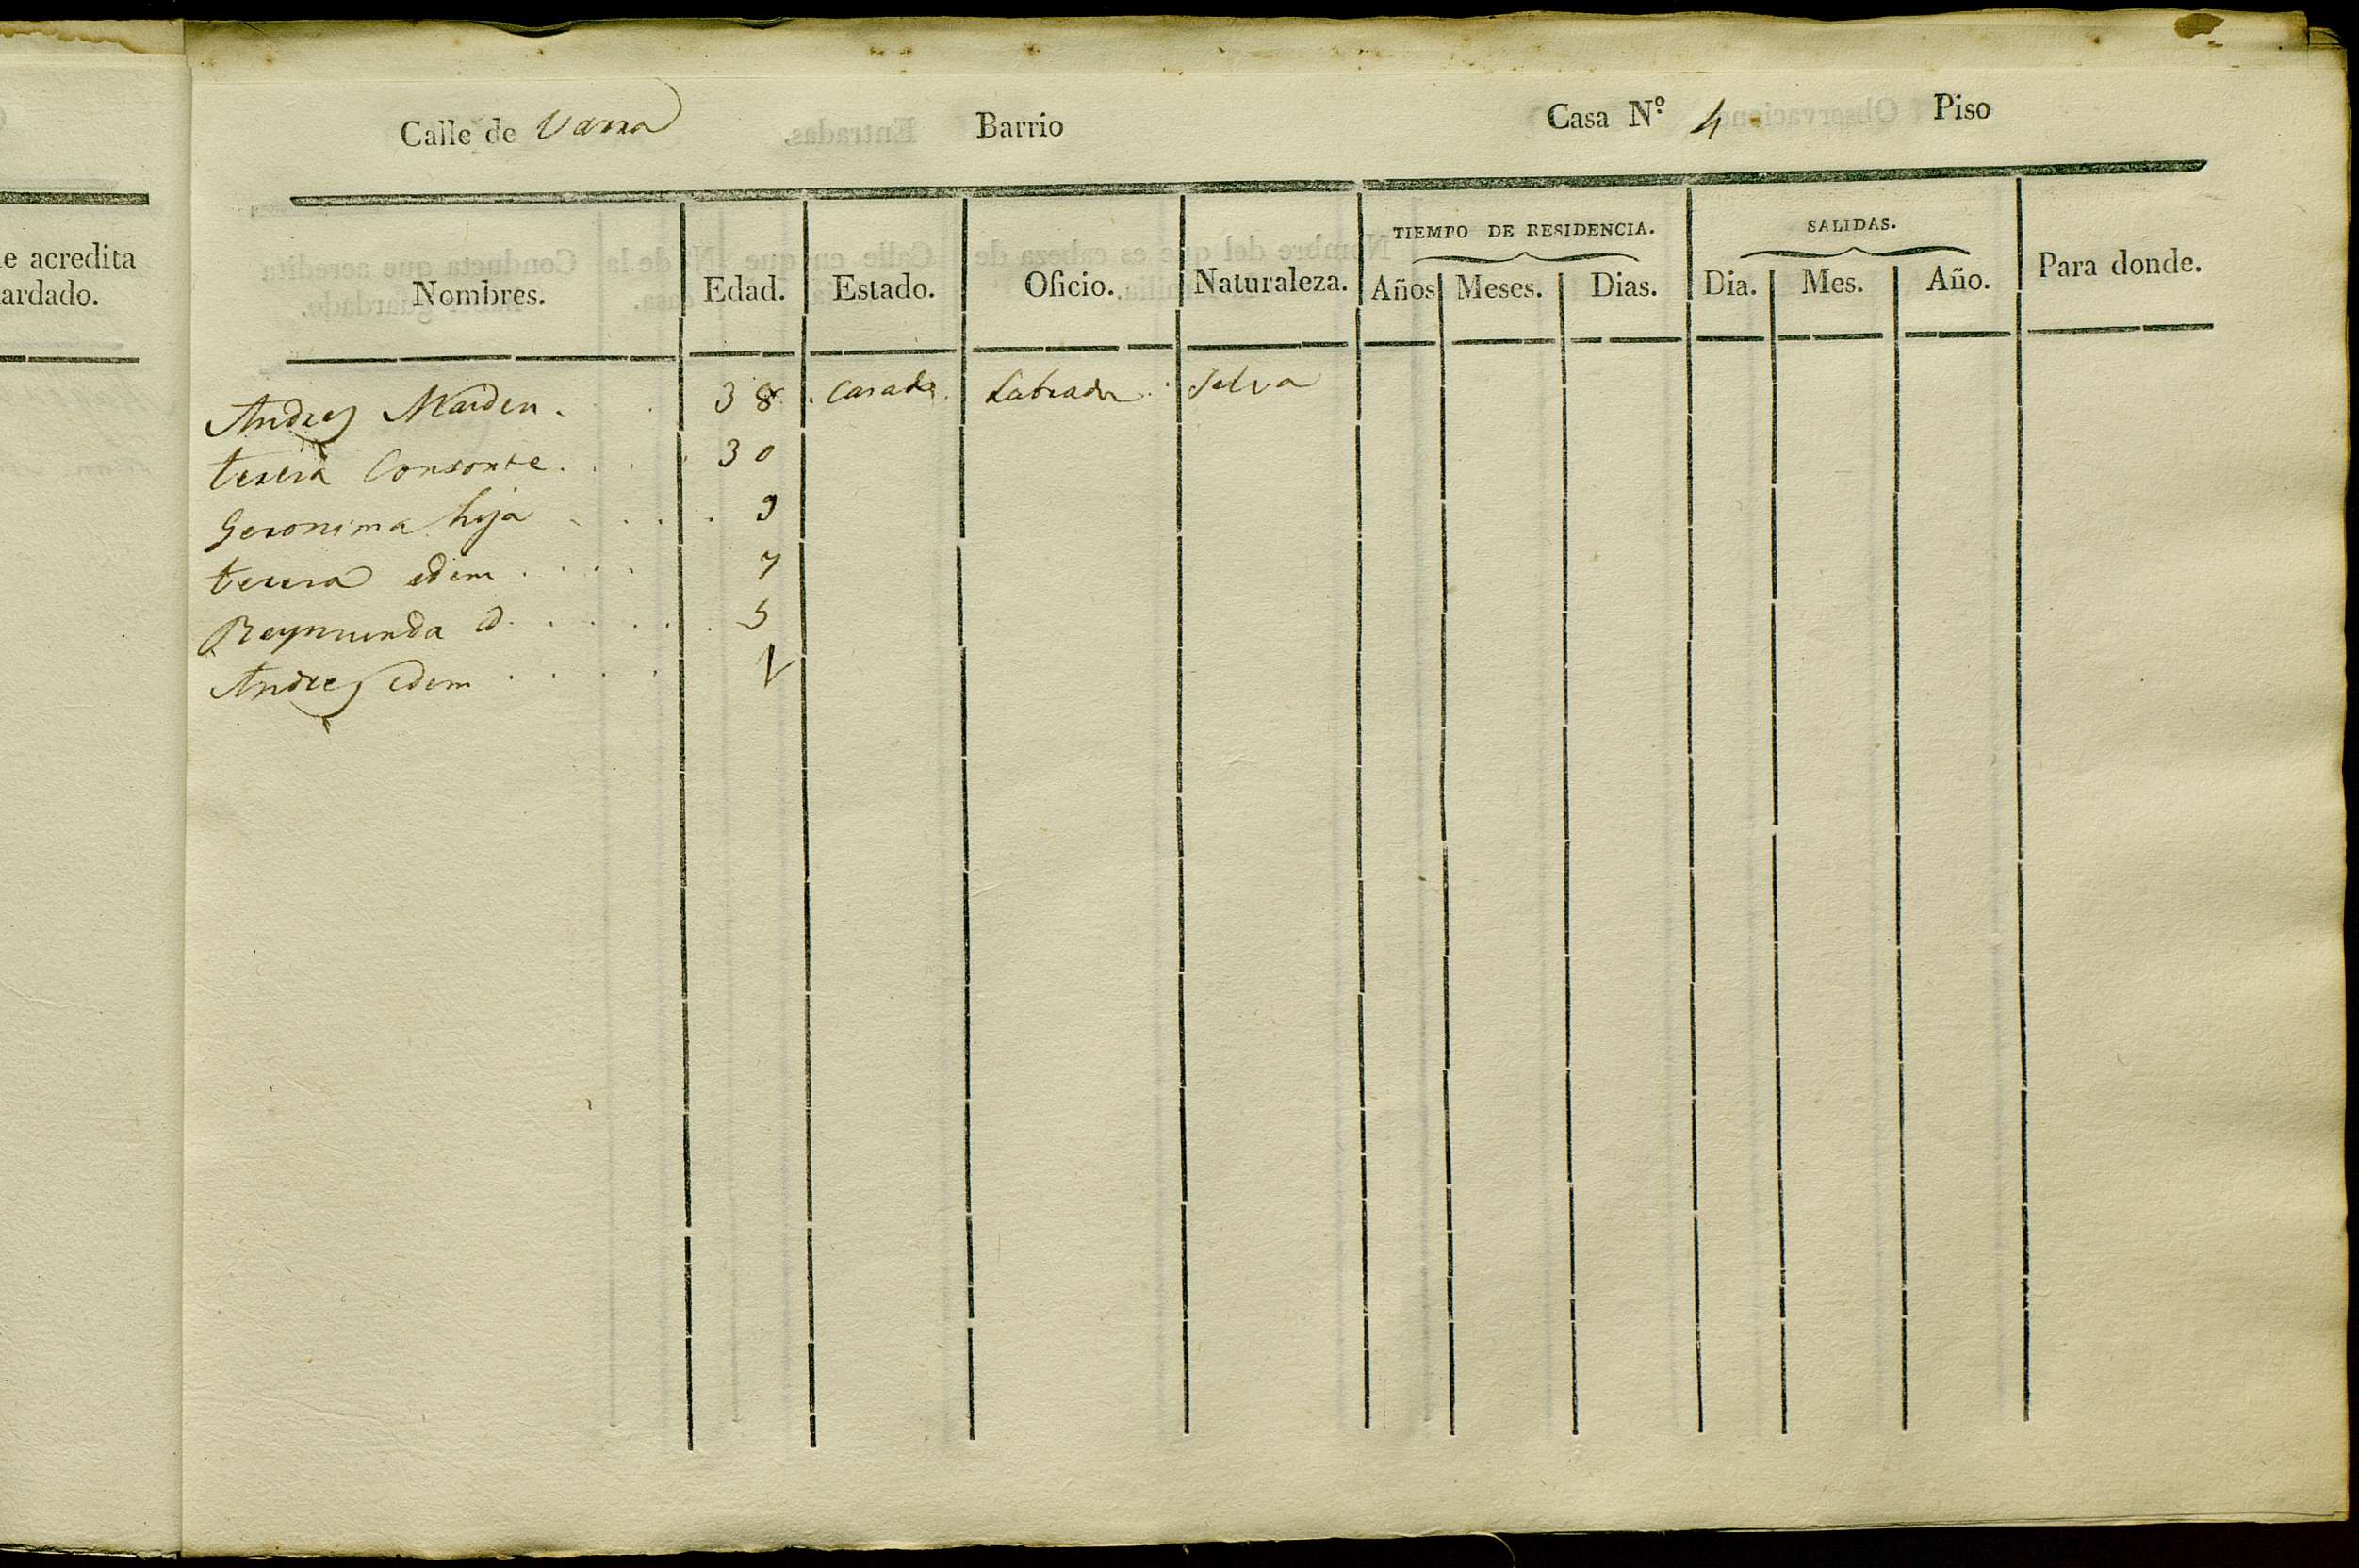 Calle de Varra Barrio Casa N.º 4 Piso
e acredita
ardado.
TIEMPO DE RESIDENCIA. SALIDAS.
Nombres. Edad. Estado. Oficio. Naturaleza. Años Meses. Dias. Dia. Mes. Año. Para donde.
Andres 38 Casado Labrador Selva
teresa Consorte 30
Geronima hija 9
teresa idem 7
Reymunda id. 5
Andres idem